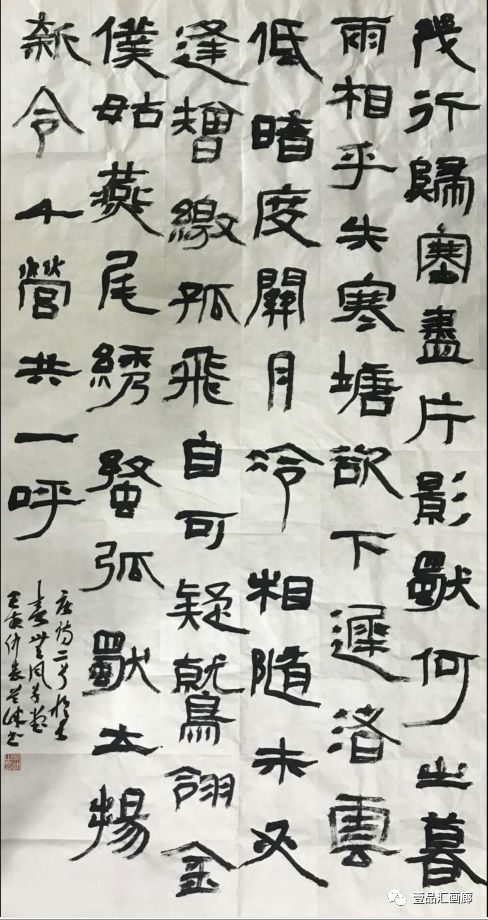 幾行歸塞盡片影獨何之暮
雨相乎失寒塘欲下遲洛雲
低暗度關月冷相隨未必
逢矰繳孤飛自可疑鷲翎金
僕姑燕尾綉蝥弧獨立揚
新令千營共一呼
唐詩二首
壬寅仲春書
壹品汇画廊